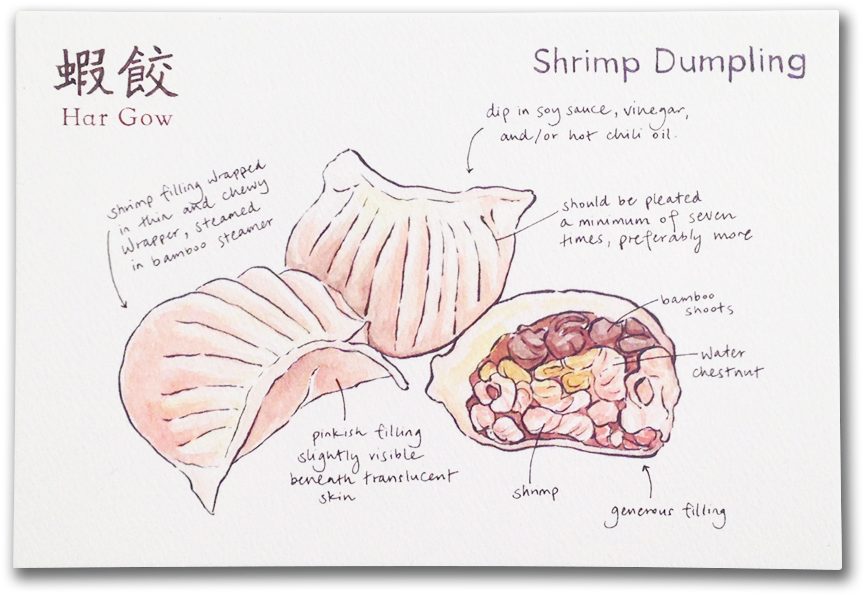 蝦餃
Har Gow
Shrimp Dumpling
dip in soy sauce, vinegar,
and/or hot chili oil.
shrimp filling wrapped
in thin and chewy
wrapper, steamed
in bamboo steamer
should be pleated
a minimum of seven
times, preferably more
bamboo
shoots
water
chestnut
pinkish filling
slightly visible
beneath translucent
skin
shrimp
generous filling